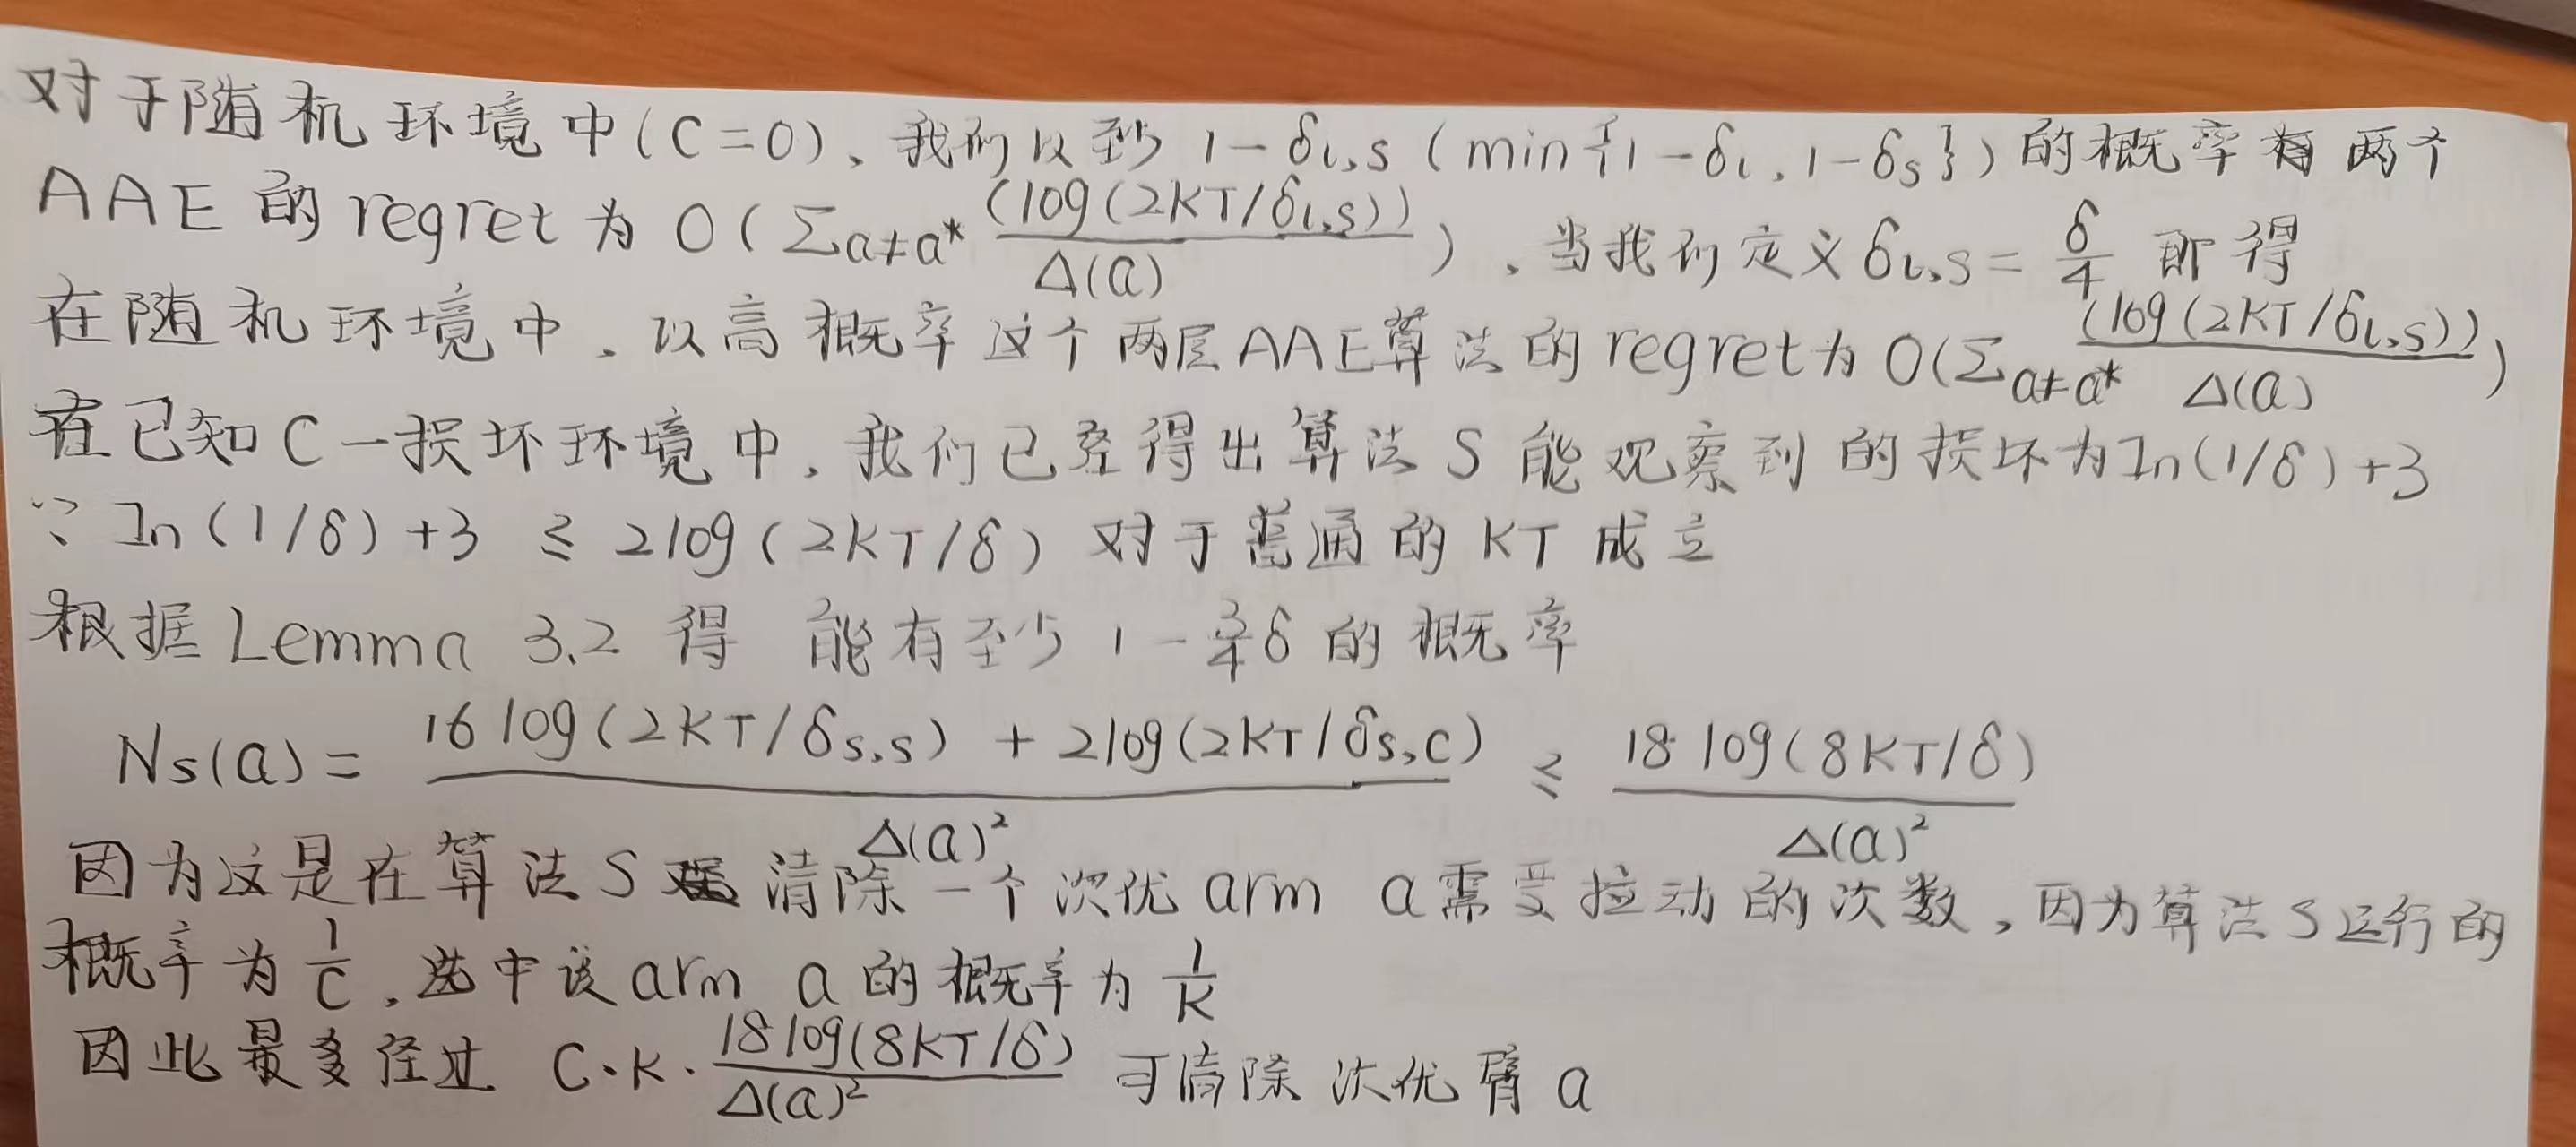 对于随机环境中(C=0)、我们以至少 1-δ_{l,s} (min{1-δ_l, 1-δ_s}) 的概率有两个
AAE 的 regret 为 O(Σ_{a≠a*} (log(2KT/δ_{l,s}))/Δ(a)) 、当我们定义 δ_{l,s} = δ/4 即得
在随机环境中、以高概率这个两层AAE算法的 regret 为 O(Σ_{a≠a*} (log(2KT/δ_{l,s}))/Δ(a))
在已知 C-损坏环境中,我们已经得出算法 S 能观察到的损坏为 ln(1/δ)+3
∵ ln(1/δ)+3 ≤ 2log(2KT/δ) 对于普通的 KT 成立
根据 Lemma 3.2 得 能有至少 1-3/4δ 的概率
Ns(a) = (16 log(2KT/δ_{s,s}) + 2log(2KT/δ_{s,c}))/Δ(a)² ≤ 18 log(8KT/δ)/Δ(a)²
因为这是在算法 S 清除一个次优 arm a 需要拉动的次数,因为算法 S 运行的
概率为 1/C ,选中该 arm a 的概率为 1/K
因此最多经过 C·K·18 log(8KT/δ)/Δ(a)² 可清除次优臂 a